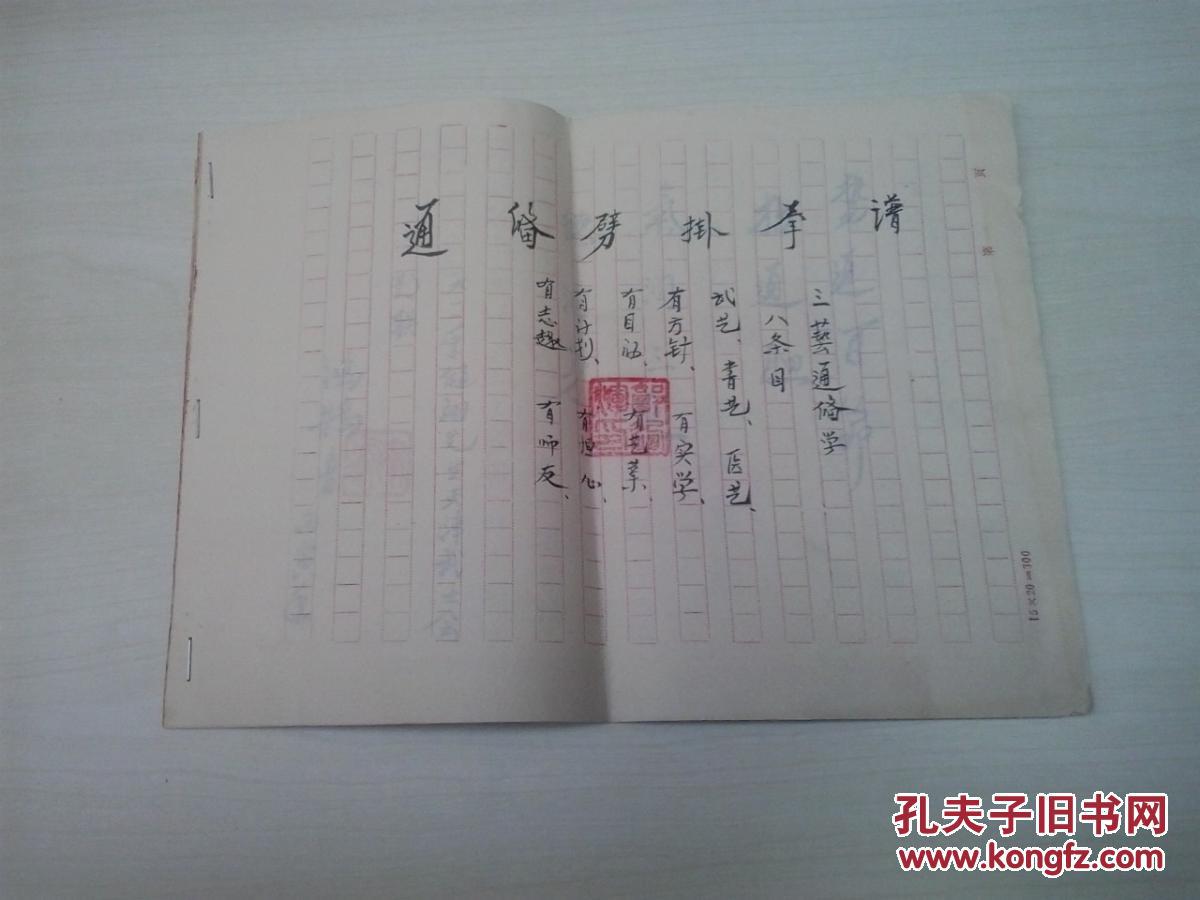 通俻劈掛拳谱
三藝通俻学
八条目
武艺、書艺、医艺、
有方针、有实学、
有目标、有艺業、
有计划、有恒心、
有志趣 有师友、
15×20=300
孔夫子旧书网
www.kongfz.com